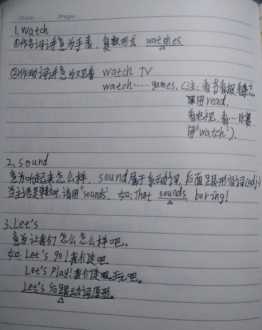 1. watch
①作名词译意为手表，复数形式 watches
②作动词译意为观看 watch TV
watch……games. (注：看书看报
要用read,
看电视、看一些赛
用"watch").
2. sound
意为听起来怎么样，sound属于系动词，后面呈接形容词(adj)
当主语是单时，请用"sounds". 如: That sounds boring!
3. Let's
意为让我们怎么怎么样吧。
如 Let's go! 我们走吧
Let's Play! 我们玩吧。
Let's 后跟动词原形。